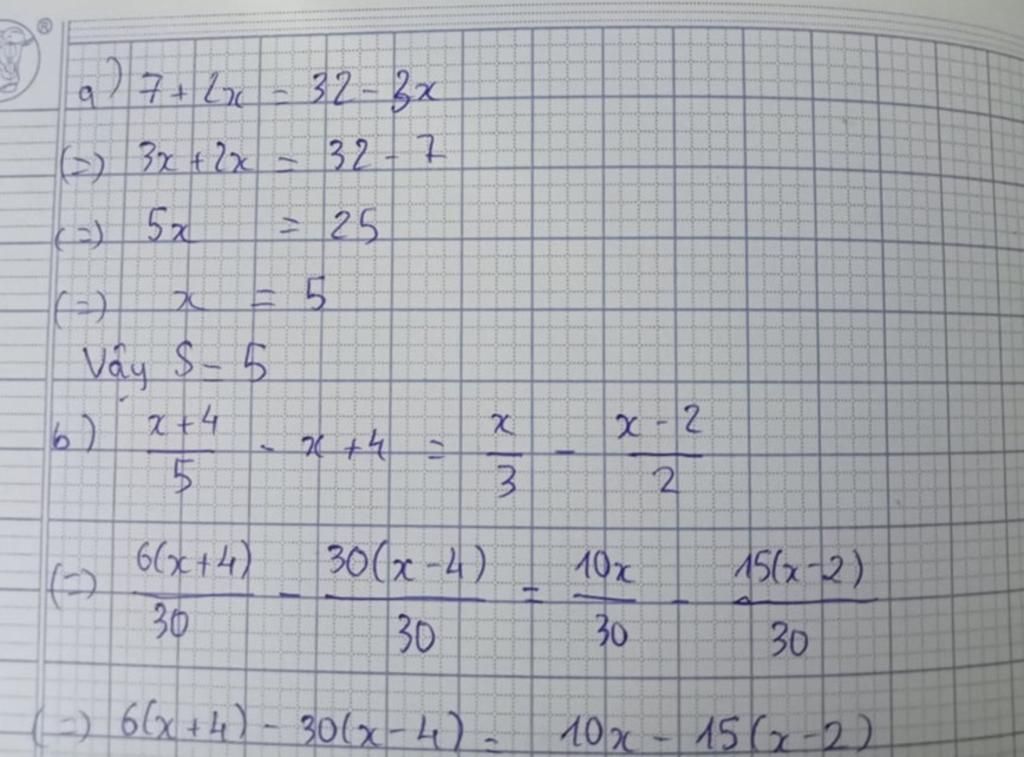 a) 7 + 2x = 32 - 3x
(=) 3x + 2x = 32 - 7
(=) 5x = 25
(=) x = 5
Vậy S = 5
b) \frac{x+4}{5} - x + 4 = \frac{x}{3} - \frac{x-2}{2}
(=) \frac{6(x+4)}{30} - \frac{30(x-4)}{30} = \frac{10x}{30} - \frac{15(x-2)}{30}
(=) 6(x+4) - 30(x-4) = 10x - 15(x-2)